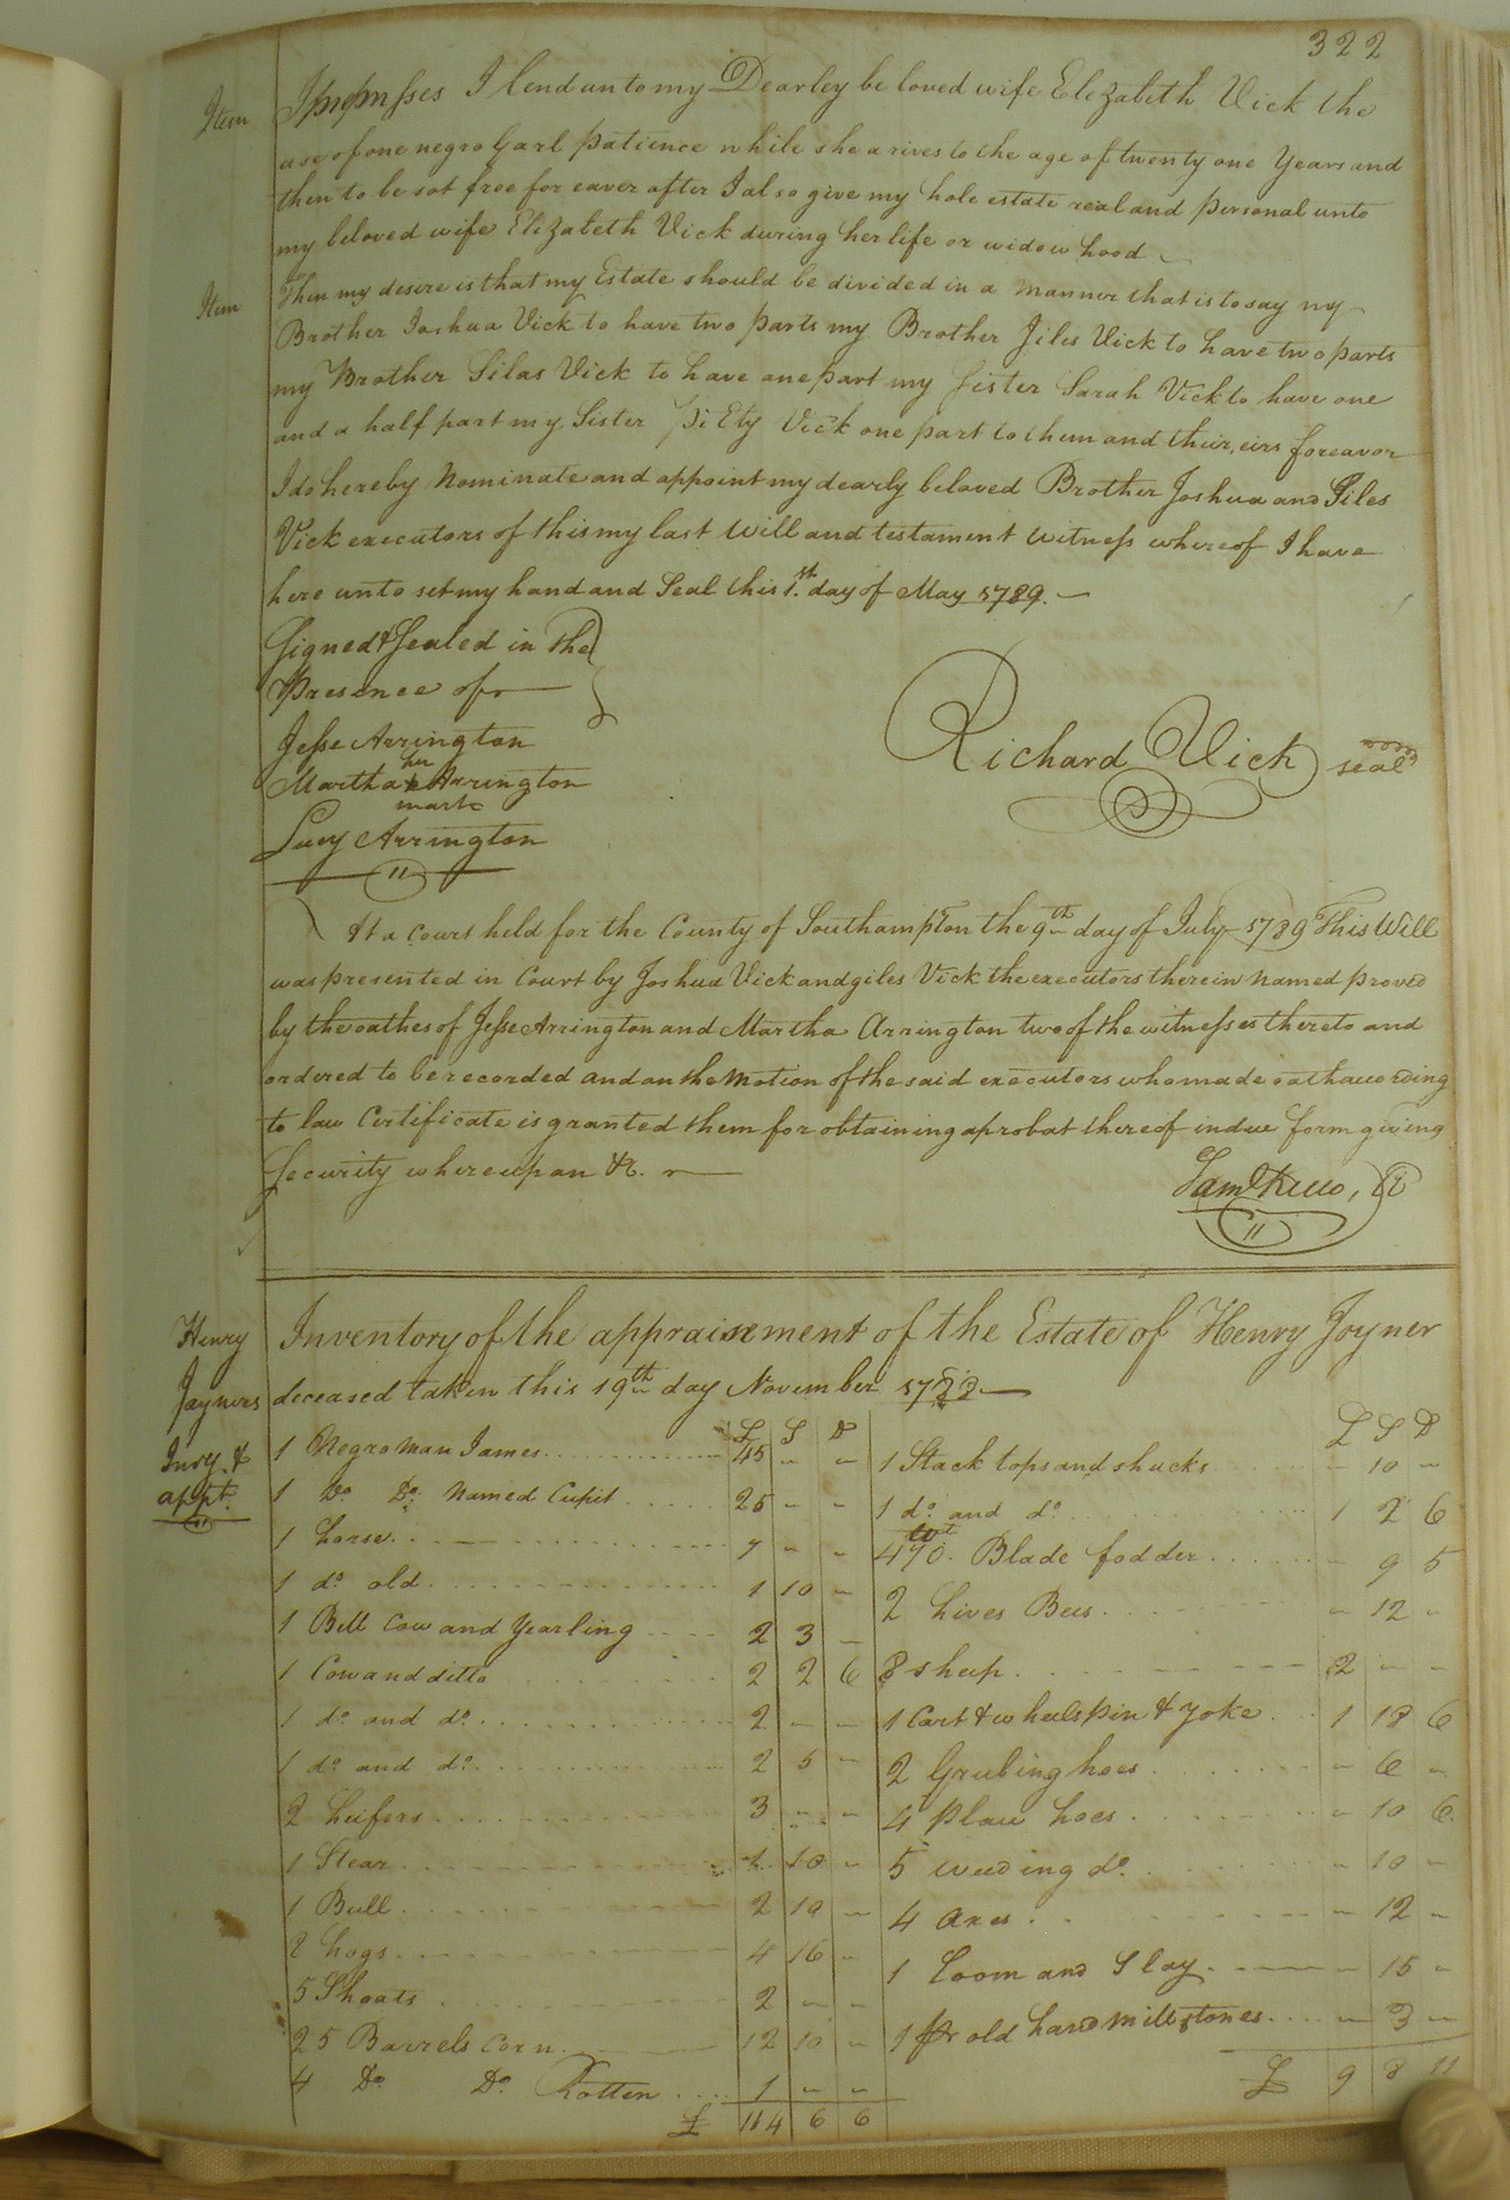 322
Item Impmsses I lend unto my Dearley be loved wife Elezabeth Vick the
use of one negro Garl patience while she arives to the age of twenty one Years and
then to be sot free for eaver after I also give my hole estate real and personal unto
my beloved wife Elizabeth Vick during her life or widow hood
Item Then my desire is that my Estate should be divided in a manner that is to say my
Brother Joshua Vick to have two parts my Brother Jiles Vick to have two parts
my Brother Silas Vick to have one part my Sister Sarah Vick to have one
and a half part my Sister PiEty Vick one part to them and their, eirs foreavor
I do hereby Nominate and appoint my dearly beloved Brother Joshua and Giles
Vick executors of this my last will and testament witness whereof I have
here unto set my hand and Seal this 1.st day of May 1789.
Signed & Sealed in The
Presence of
Jesse Arrington
her
Martha x Arrington
mark
Lucy Arrington
Richard Vick seal
At a Court held for the County of Southampton the 9th day of July 1789 This Will
was presented in Court by Joshua Vick and giles Vick the executors therein named proved
by the oathes of Jesse Arrington and Martha Arrington two of the witnesses thereto and
ordered to be recorded and on the Motion of the said executors who made oath according
to law Certificate is granted them for obtaining a probat thereof in due form giving
Security whereupon &c.
Saml Kello,
Henry Joyners Invy. & appt.
Inventory of the appraisement of the Estate of Henry Joyner
deceased taken this 19th day November
£ S D
1 Negro Man James 45 " "
1 Do Do. Named Cupit 25 " "
1 horse 7 " "
1 do old 1 10 "
1 Bell Cow and Yearling 2 3 "
1 Cow and ditto 2 2 6
1 do and do 2 " "
1 do and do 2 5 "
2 heifers 3 " "
1 Stear 1 10 "
1 Bull 2 10 "
8 hogs 4 16 "
5 Shoats 2 " "
25 Barrels Corn 12 10 "
4 Do Do. Rotten 1 " "
£ 114 6 6
£ S D
1 Stack tops and shucks " 10 "
1 do and do 1 2 6
470 wt. Blade fodder " 9 5
2 hives Bees " 12 "
8 sheep 2 " "
1 Cart & wheels pin & yoke 1 18 6
2 Grubing hoes " 6 "
4 Plow hoes " 10 6
5 weeding do " 10 "
4 Axes " 12 "
1 Loom and Slay " 15 "
1 pr old hand mill stones " 3 "
£ 9 8 11